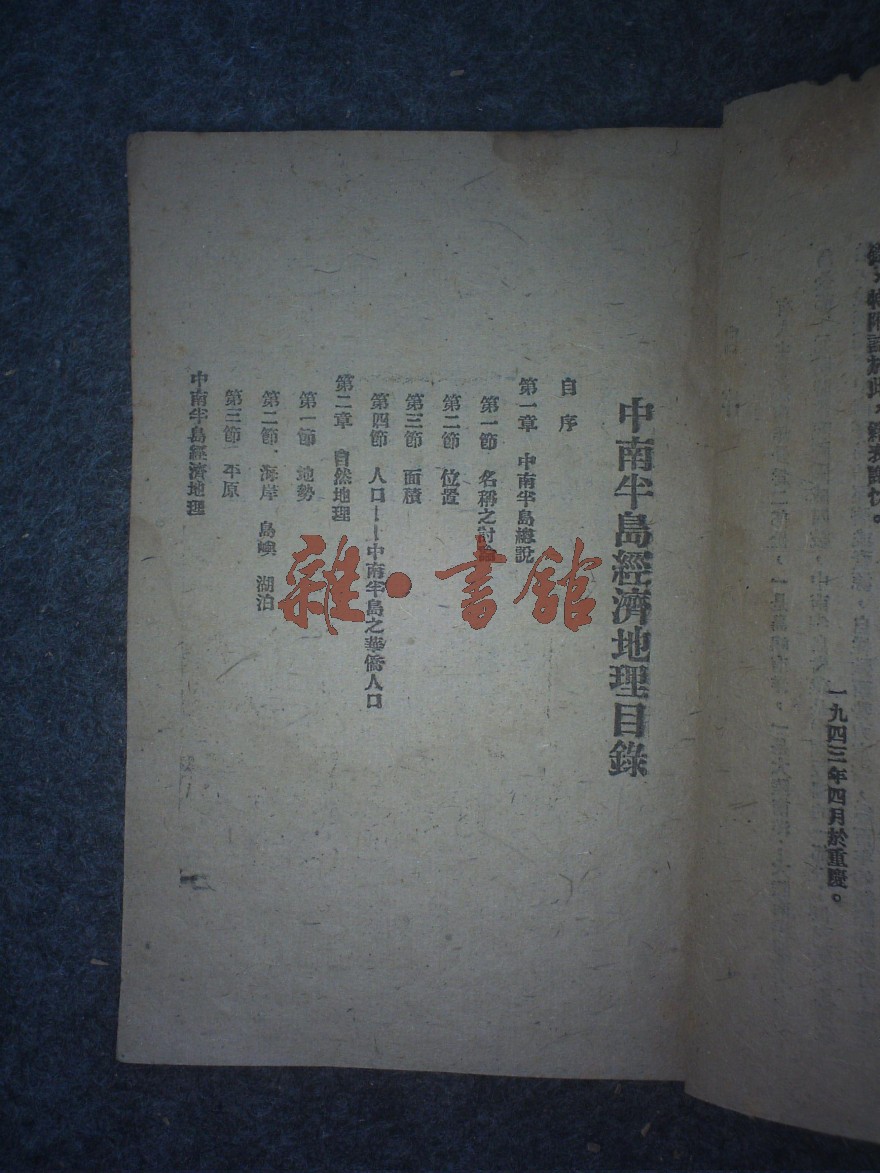 一九四三年四月於重慶。
中南半島經濟地理目錄
自序
第一章 中南半島總說
第一節 名稱之討論
第二節 位置
第三節 面積
第四節 人口——中南半島之華僑人口
第二章 自然地理
第一節 地勢
第二節 海岸 島嶼 湖泊
第三節 平原
中南半島經濟地理
雜·書館